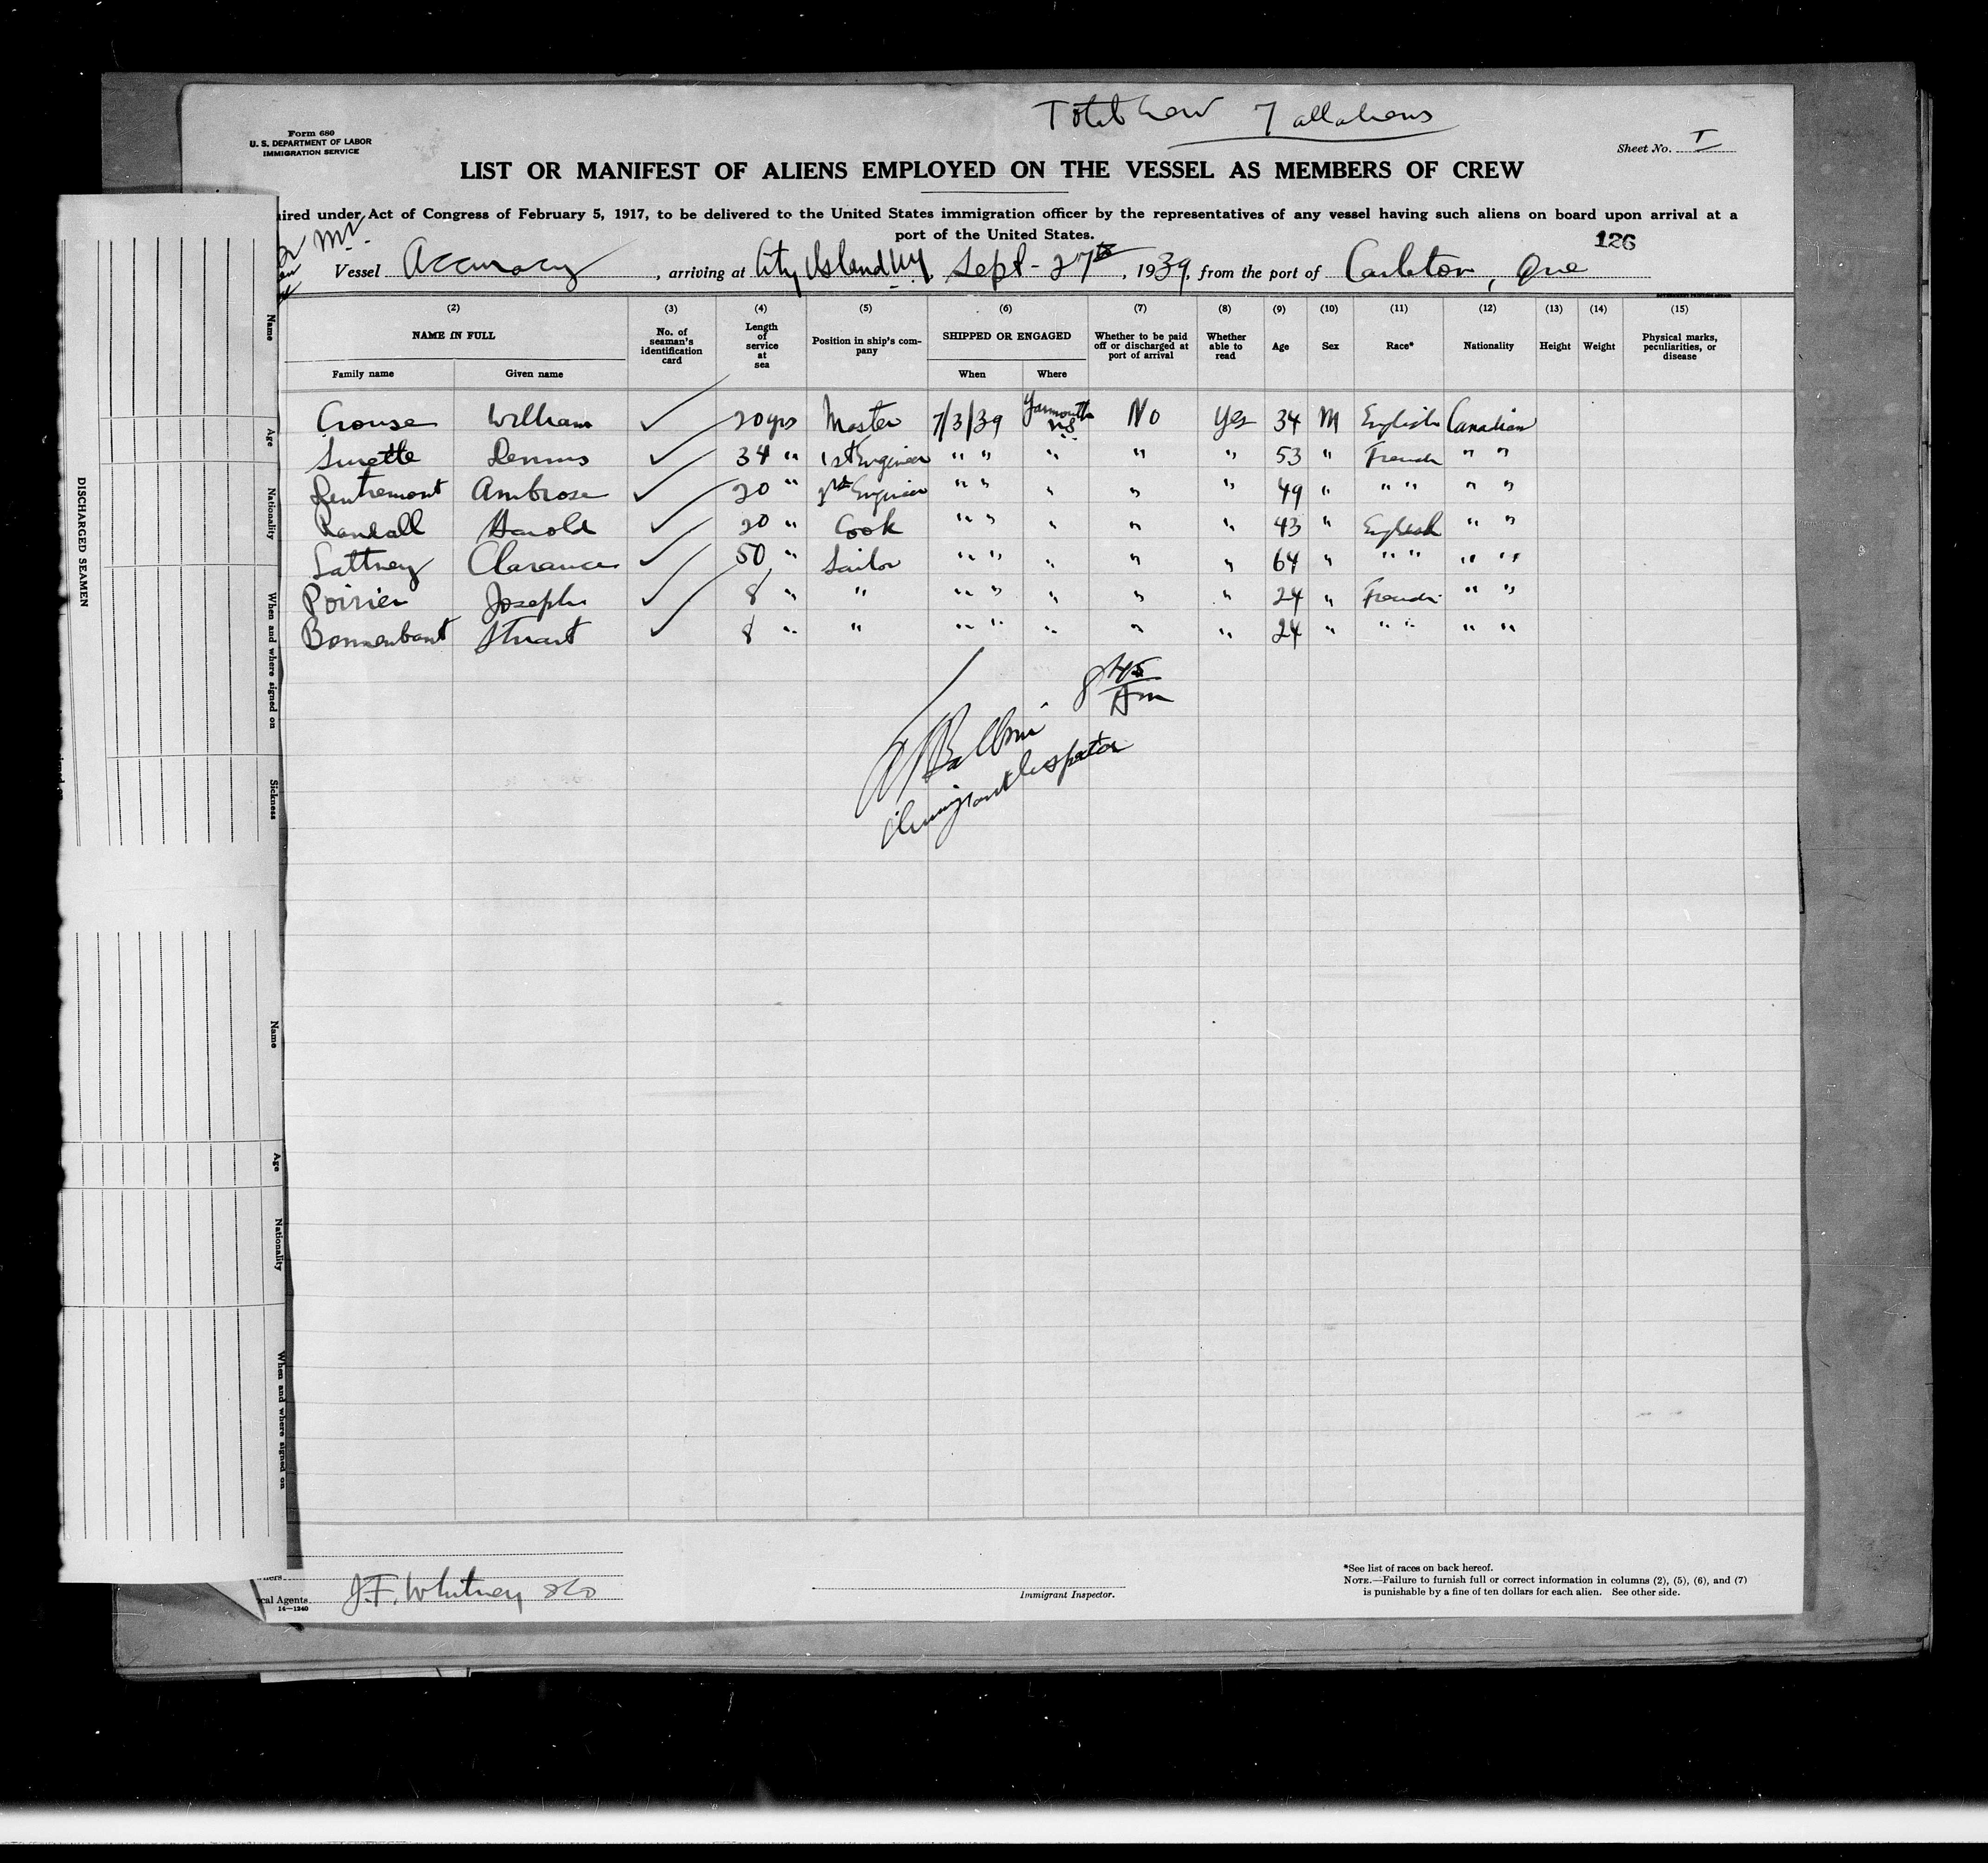 Total crew 7 all aliens
Form 680
U. S. DEPARTMENT OF LABOR
IMMIGRATION SERVICE
Sheet No. I
LIST OR MANIFEST OF ALIENS EMPLOYED ON THE VESSEL AS MEMBERS OF CREW
ired under Act of Congress of February 5, 1917, to be delivered to the United States immigration officer by the representatives of any vessel having such aliens on board upon arrival at a
port of the United States.
126
Vessel Accuracy, arriving at City Island NY, Sept - 27th, 1939, from the port of Carleton, Que
(2) (3) (4) (5) (6) (7) (8) (9) (10) (11) (12) (13) (14) (15)
NAME IN FULL No. of seaman's identification card Length of service at sea Position in ship's company SHIPPED OR ENGAGED Whether to be paid off or discharged at port of arrival Whether able to read Age Sex Race* Nationality Height Weight Physical marks, peculiarities, or disease
Family name Given name When Where
Crouse William ✓ 20 yrs Master 7/3/39 Yarmouth N.S. No Yes 34 M English Canadian
Surette Dennis ✓ 34 " 1st Engineer " " " " " 53 " French " "
Dentremont Ambrose ✓ 20 " 2nd Engineer " " " " " 49 " " " " "
Randall Harold ✓ 20 " Cook " " " " " 43 " English " "
Lattney Clarance ✓ 50 " Sailor " " " " " 64 " " " " "
Poirier Joseph ✓ 8 " " " " " " " 24 " French " "
Stuart ✓ 8 " " " " " " " 24 " " " " "
8 45 Am
Immigrant Inspector
DISCHARGED SEAMEN
Name
Age
Nationality
When and where signed on
Sickness
Name
Age
Nationality
When and where signed on
cal Agents
J.F. Whitney & Co
14—1240
Immigrant Inspector.
*See list of races on back hereof.
NOTE.—Failure to furnish full or correct information in columns (2), (5), (6), and (7)
is punishable by a fine of ten dollars for each alien. See other side.